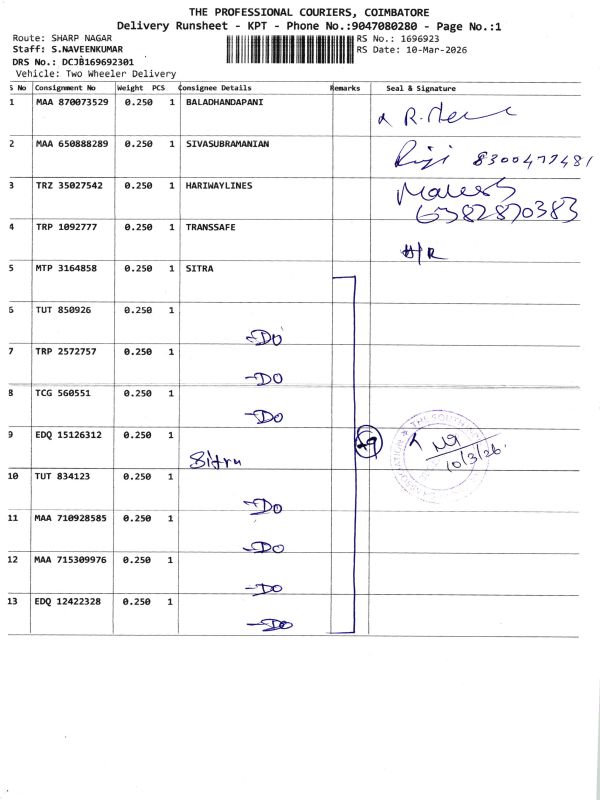 THE PROFESSIONAL COURIERS, COIMBATORE
Delivery Runsheet - KPT - Phone No.:9047080280 - Page No.:1
Route: SHARP NAGAR RS No.: 1696923
Staff: S.NAVEENKUMAR RS Date: 10-Mar-2026
DRS No.: DCJB169692301
Vehicle: Two Wheeler Delivery
S No Consignment No Weight PCS Consignee Details Remarks Seal & Signature
1 MAA 870073529 0.250 1 BALADHANDAPANI
2 MAA 650888289 0.250 1 SIVASUBRAMANIAN 8300477481
3 TRZ 35027542 0.250 1 HARIWAYLINES Mahesh
6382870383
4 TRP 1092777 0.250 1 TRANSSAFE
5 MTP 3164858 0.250 1 SITRA
6 TUT 850926 0.250 1
-DO
7 TRP 2572757 0.250 1
-DO
8 TCG 560551 0.250 1
-DO
9 EDQ 15126312 0.250 1
Sitra
10/3/26.
10 TUT 834123 0.250 1
-DO
11 MAA 710928585 0.250 1
-DO
12 MAA 715309976 0.250 1
-DO
13 EDQ 12422328 0.250 1
-DO